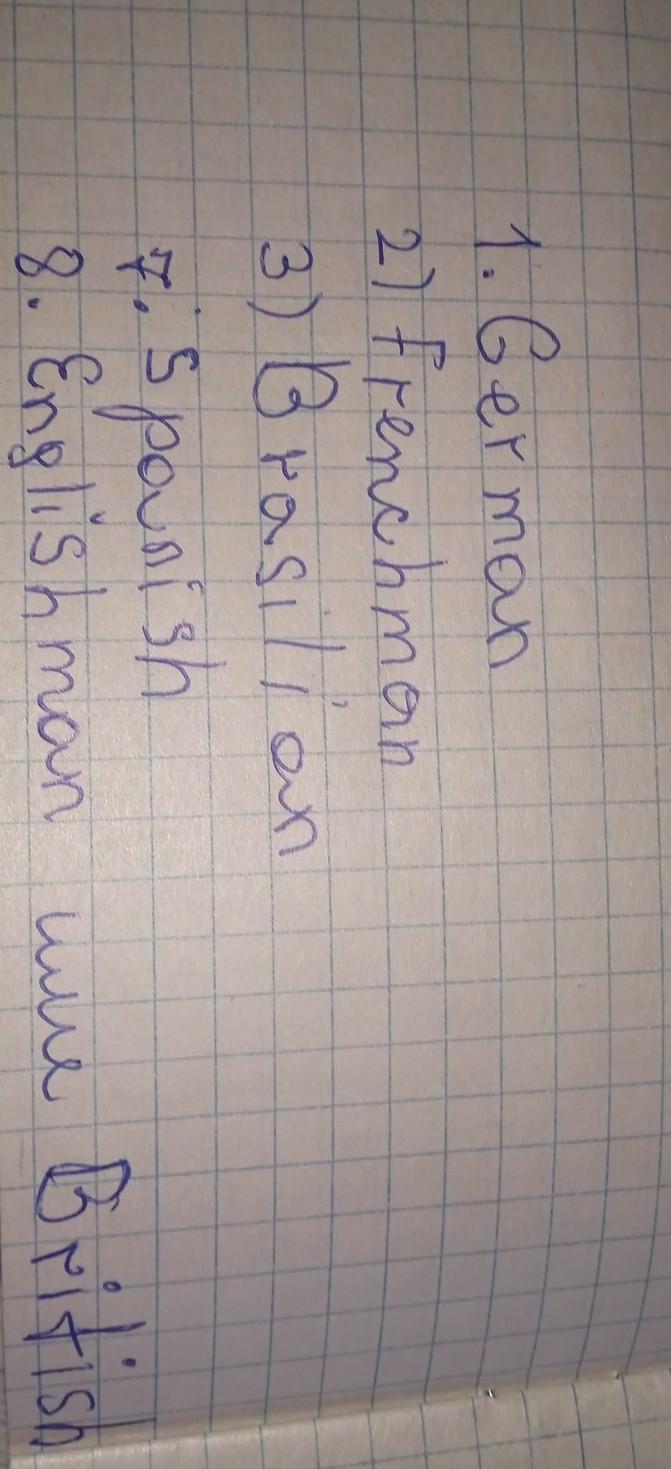 1. German
2) Frenchman
3) Brasilian
7. Spanish
8. Englishman или British